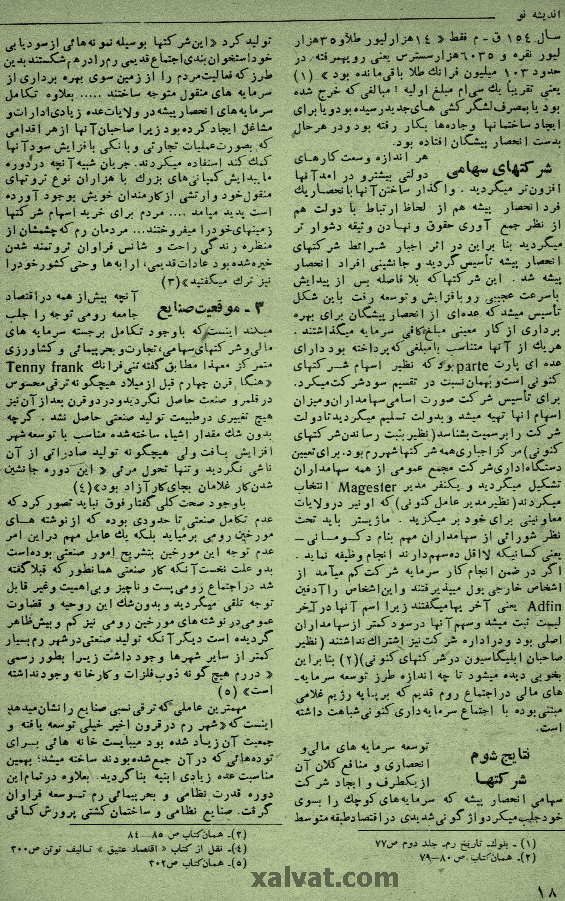 اندیشه نو
سال ١٥٤ ق - م فقط « ١٤هزار لیور طلا و٣٥هزار
لیور نقره و ٦٠٣٥هزارسسترس یعنی رویهمرفته در
حدود ١٠٣ میلیون فرانك طلا باقی‌مانده بود » (١)
یعنی تقریباً یك سی‌ام مبلغ اولیه ! مبالغی که خرج شده
بود یا بمصرف لشگر کشی های جدید رسیده بود و یا برای
ایجاد ساختمانها وجاده‌ها بکار رفته بود و در هر حال
بدست انحصار پیشگان افتاده بود.
شرکتهای سهامی
هر اندازه وسعت کارهای
دولتی بیشتر و در آمد آنها
افزون‌تر میگردید . واگذار ساختن آنها با نحصار یك
فرد انحصار پیشه هم از لحاظ ارتباط با دولت هم
از نظر جمع آوری حقوق و نهادن وثیقه دشوار تر
میگردید بنا براین در اثر اجبار شرائط شرکتهای
انحصار پیشه تأسیس گردید و جانشینی افراد انحصار
پیشه شد . این شرکتها که بلا فاصله پس از پیدایش
باسرعت عجیبی رو بافزایش و توسعه رفت باین شکل
تأسیس میشد که عده‌ای از انحصار پیشگان برای بهره
برداری از کار معینی مبلغ کافی سرمایه میگذاشتند .
هر یك از آنها متناسب با مبلغی که پرداخته بود دارای
عده ای پارت parte بود که نظیر اسهام شرکتهای
کنونی است و بهمان نسبت در تقسیم سود شرکت میکرد.
برای تأسیس شرکت صورت اسامی سهامداران و میزان
اسهام آنها تهیه میشد و بدولت تسلیم میگردید تا دولت
شرکت را برسمیت بشناسد(نظیر بثبت رساندن شرکتهای
کنونی) مرکز اجباری همه شرکتها شهر رم بود . برای تعیین
دستگاه اداری شرکت مجمع عمومی از همه سهامداران
تشکیل میگردید و یکنفر مدیر Magester انتخاب
میکردند (نظیر مدیر عامل کنونی) که او نیز در ولایات
معاونینی برای خود بر میگزید . ماژیستر باید تحت
نظر شورائی از سهامداران مهم بنام دکومانی -
یعنی کسانیکه لااقل ده سهم دارند انجام وظیفه نماید .
اگر در ضمن انجام کار سرمایه شرکت کم میآمد از
اشخاص خارجی پول میپذیرفتند و این اشخاص را آدفین
Adfin یعنی آخر یها میگفتند زیرا اسم آنها در آخر
لیست ثبت میشد و سهم آنها در سود کمتر از سهامداران
اصلی بود و در اداره شرکت نیز اشتراك نداشتند (نظیر
صاحبان ابلیگاسیون در شرکتهای کنونی)(٢) بنابراین
بخوبی دیده میشود تا چه اندازه طرز توسعه سرمایه-
های مالی در اجتماع روم قدیم که بر پایه رژیم غلامی
مبتنی بوده با اجتماع سرمایه‌داری کنونی شباهت داشته
است.
نتایج شوم شرکتها
توسعه سرمایه های مالی و
انحصاری و منافع کلان آن
از یکطرف و ایجاد شرکت
سهامی انحصار پیشه که سرمایه‌های کوچك را بسوی
خود جلب میکرد واژگونی شدیدی در اقتصاد طبقه متوسط
(١) - بلوك- تاریخ رم. جلد دوم ص٧٧
(٢)- همان کتاب ص ٨٠-٧٩
تولید کرد «این شرکتها بوسیله نمونه هائی از سود یابی
خود استخوان بندی اجتماع قدیمی رم را درهم شکستند بدین
طرز که فعالیت مردم را از زمین سوی بهره برداری از
سرمایه های منقول متوجه ساختند ..... بعلاوه تکامل
سرمایه های انحصار پیشه در ولایات عده زیادی ادارات و
مشاغل ایجاد کرده بود زیرا صاحبان آنها از هر اقدامی
که بصورت عملیات تجارتی و بانکی بافزایش سود آنها
کمك کند استفاده میکردند. جریان شبیه آنچه در دوره
ما پیدایش کمپانی‌های بزرك با هزاران نوع ثروتهای
منقول خود و ارتشی از کارمندان خویش بوجود آورده
است پدید میآمد .... مردم برای خرید اسهام شرکتها
زمینهای خود را میفروختند... مردمان رم که چشمشان از
منظره زندگی راحت و شانس فراوان ثروتمند شدن
خیره شده بود عادات قدیمی، ارابه‌ها وحتی کشور خود را
نیز ترك میگفتند»(٣)
٣ - موقعیت صنایع
آنچه بیش از همه در اقتصاد
جامعه رومی توجه را جلب
میکند اینست که باوجود تکامل برجسته سرمایه های
مالی و شرکتهای سهامی، تجارت و بحرپیمائی و کشاورزی
متمرکز معهذا مطابق گفته تنی فرانك Tenny frank
«هنگام قرن چهارم قبل از میلاد هیچگونه ترقی محسوس
در قلمرو صنعت حاصل نگردید و در دو قرن بعد از آن نیز
هیچ تغییری در طبیعت تولید صنعتی حاصل نشد . گرچه
بدون شك مقدار اشیاء ساخته شده مناسب با توسعه شهر
افزایش یافت ولی هیچگونه تولید صادراتی از آن
ناشی نگردید و تنها تحول مرئی « این دوره جانشین
شدن کار غلامان بجای کار آزاد بود»(٤)
باوجود صحت کلی گفتار فوق نباید تصور کرد که
عدم تکامل صنعتی تا حدودی بوده که از نوشته های
مورخین رومی برمیاید بلکه یك عامل مهم در این امر
عدم توجه این مورخین بتشریح امور صنعتی بوده‌است
بدو علت نخست آنکه کار صنعتی همانطور که قبلا گفته
شد در اجتماع رومی پست و ناچیز و بی‌اهمیت و غیر قابل
توجه تلقی میگردید و بدون شك این روحیه و قضاوت
عمومی در نوشته های مورخین رومی نیز کم و بیش ظاهر
گردیده است دیگر آنکه تولید صنعتی در شهر رم بسیار
کمتر از سایر شهرها وجود داشت زیرا بطور رسمی
« در رم هیچ گونه ذوب فلزات و کارخانه وجود نداشته
است» (٥)
مهمترین عاملی که ترقی نسبی صنایع را نشان میدهد
اینست که « شهر رم در قرون اخیر خیلی توسعه یافته و
جمعیت آن زیاد شده بود میبایست خانه هائی برای
توده‌هائی که در آن جمع شده بودند ساخته میشد؛ بهمین
مناسبت عده زیادی ابنیه بنا گردید. بعلاوه در تمام این
دوره قدرت نظامی و بحر پیمائی رم توسعه فراوان
گرفت. صنایع نظامی و ساختمان کشتی پرورش کافی
(٣)- همان کتاب ص ٨٥—٨٤
(٤)- نقل از کتاب « اقتصاد عتیق » تألیف توتن ص٣٠٠
(٥)- همان کتاب ص٣٠٢
xalvat.com
١٨